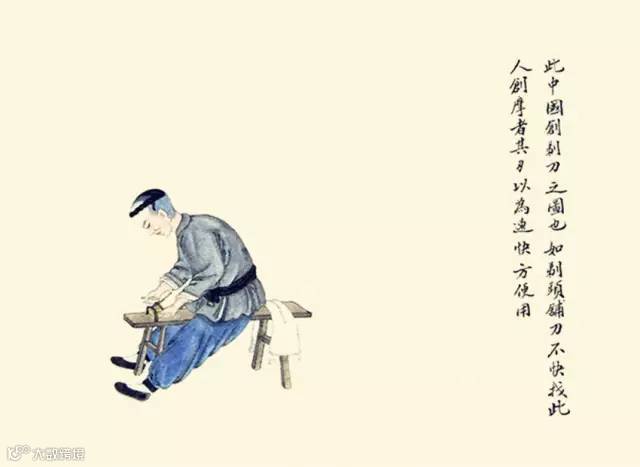 此中國創剃刀之圖也如剃頭鋪刀不快找此
人創摩者其刀以為速快方便用
大数跨境